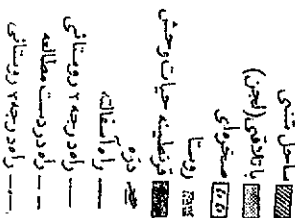 ساحل شنی
باتلاقی (لجن)
صخره‌ای
روستا
قرنطینه حیات وحش
دره
راه آسفالته
راه درجه ۲ روستائی
راه در دست مطالعه
راه درجه ۳ روستائی